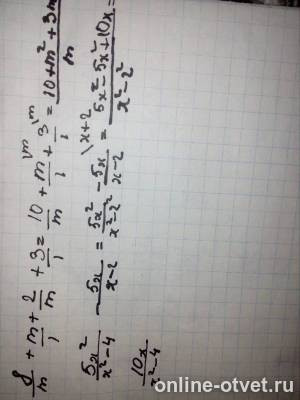 8/m + m/1 + 2/m + 3/1 = 10/m + m\m/1 + 3\m/1 = 10+m²+3m/m
5x²/x²-4 - 5x/x-2 = 5x²/x²-2² - 5x\x+2/x-2 = 5x²-5x²+10x/x²-2² =
10x/x²-4
online-otvet.ru